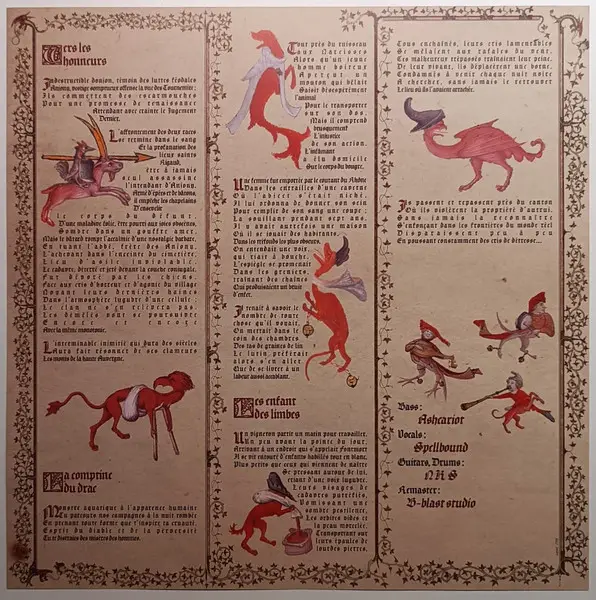 Vers les
honneurs
Indestructible donjon, témoin des luttes féodales
Anjony, vestige somptueux offense la vue des Tournemire;
Ils commettent des escarmouches
Pour une promesse de renaissance
Attendant avec crainte le Jugement
Dernier.
L'affrontement des deux races
Se termine dans le sang
Et la profanation des
lieux saints
Rigaud,
être à jamais
seul assassine
l'intendant d'Anjony,
Armé d'épées et de bâtons,
il empêche les chapelains
D'ensevelir
Le corps du défunt,
D'une maladive colic, ère pourrit aux joies obscènes,
Sombre dans un gouffre amer,
Mais le bâtard rompt l'acariâtre d'une nostalgie barbare,
En tuant l'abbé, frère des Anjony.
L'achevant dans l'enceinte du cimetière,
Lieu d'asile inviolable.
Le cadavre, déterré et jeté devant la couche conjugale,
Fut dévoré par les chiens.
Face aux cris d'horreur et d'agonie du village
Voyant leurs dernières heures
Dans l'atmosphère lugubre d'une cellule:
Le clan ne s'en releva pas
Les démêlés sont se poursuivre
Encore et encore
Avec la même monotomie.
L'interminable inimitié qui dura des siècles
Laura fait résonner de ses clameurs
Les monts de la haute Auvergne.
La comptine
du drac
Monstre aquatique à l'apparence humaine
Tu parcours nos campagnes à la nuit tombée
En prenant toute forme que t'inspire ta cruauté.
Esprit du diable et de la perversité
Tu te distrais des misères des hommes.
Tout près du ruisseau
Aux Narcisses
Alors qu'un jeune
homme boiteux
Aperçut un
mouton qui bêlait
Saisit désespérément
l'animal
Pour le transporter
sur son dos.
Mais il comprend
brusquement
L'injustice
de son action.
L'infâmant
a élu domicile
Sur le corps du bougre.
Une femme fut emportée par le courant du Rhône
Dans les entrailles d'une caverne
Où l'abject s'était niché.
Il lui ordonna de donner son sein
Pour emplir de son sang une coupe.
La souillant pendant sept ans,
Il y avait autrefois une maison
Où il se jouait des habitants.
Dans les tréfonds les plus obscurs,
On entendait une voix,
qui riait à bouche.
L'espiègle se promenait
Dans les greniers,
traînant des chaînes
Qui produisaient un bruit
d'enfer.
Prenait à saisir le
nombre de toute
chose qu'il voyait.
On mettait dans le
coin des chambres
Des tas de graines de lin
Le lutin préférait
alors s'en aller
Que de se livrer à un
labeur aussi accablant.
Les enfant
des limbes
Un vigneron partit un matin pour travailler.
Un peu avant la pointe du jour,
Arrivant à un endroit qui s'appelait Fontmort
Il se vit entouré d'enfants habillés tout en blanc,
Plus petits que ceux qui viennent de naître
Se pressant autour de lui,
criant d'une voix lugubre.
Leurs visages de
cadavres putréfiés,
Vomissant une
sombre pestilence,
Les orbites vides et
la peau morcelée.
Transportant sur
leurs épaules de
lourdes pierres.
Tous enchaînés, leurs cris lamentables
Se mêlaient aux rafales du vent.
Ces malheureux trépassés traînaient leur peine,
De leur vivant, ils déplacèrent une borne.
Condamnés à venir chaque nuit noire
A chercher, sans jamais le retrouver
Le lieu où ils l'avaient arrachée.
Ils passent et repassent près du canton
Où ils violèrent la propriété d'autrui.
Sans jamais la reconnaître
S'enfonçant dans les frontières du monde réel
Disparaissent peu à peu
En poussant constamment des cris de détresse...
Bass:
Ashcariot
Vocals:
Spellbound
Guitars, Drums:
NKS
Remaster:
B-blast studio